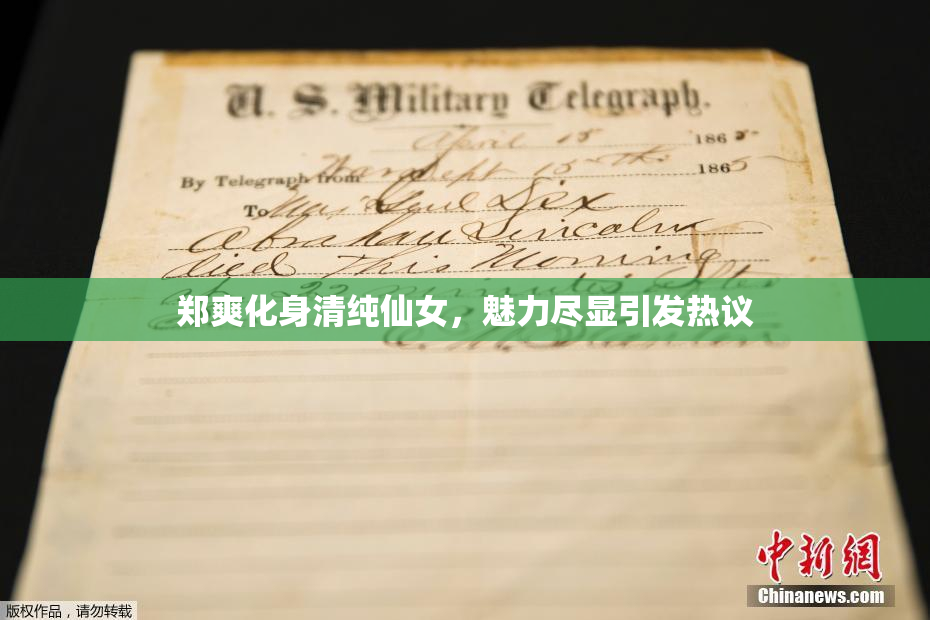 U. S. Military Telegraph.
April 15 1865
By Telegraph from War Dept 15th 1865
To Maj Genl Dix
Abraham Lincoln
died This Morning
at 22 minutes after
郑爽化身清纯仙女，魅力尽显引发热议
E. M. Stanton
中新网
Chinanews.com
版权作品，请勿转载